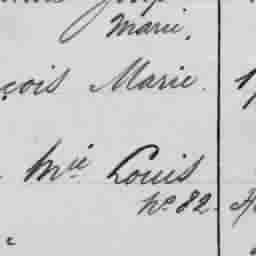 Marie,
çois Marie.
Mie Louis
No. 82.